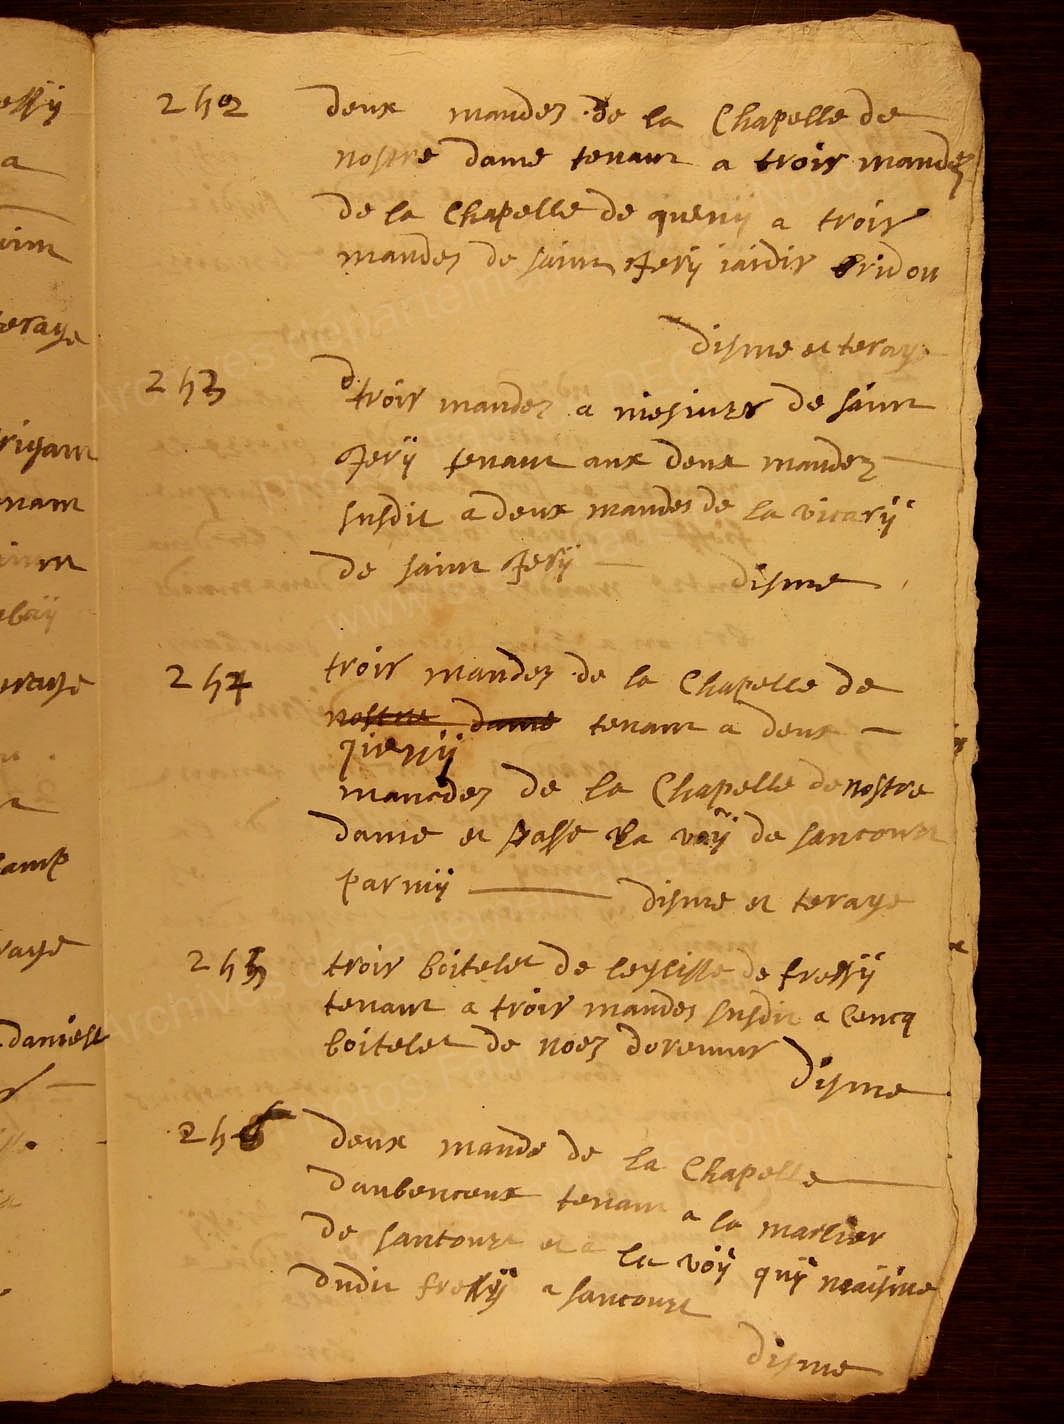 252 deux mandez de la Chapelle de
nostre dame tenant a trois mandez
de la Chapelle de queriij a trois
mandez de saint Jerij iaidis bridou
disme et terage
253 trois mandez a mesiurs de saint
Jerij tenant aux deux mandez
susdit a deux mandes de la vicarij
de saint Jerij disme
254 trois mandez de la Chapelle de
nostre dame tenant a deux
quenij
mandez de la Chapelle de nostre
dame et passe la voij de sancourt
parmij disme et terage
255 trois boitelet de leglisse de fressij
tenant a trois mandes susdit a cencq
boitelet de noez
disme
256 deux mande de la Chapelle
daubenceux tenant a la marlier
de sancourt et a la voij quij maisine
dudit fressij a sancourt
disme
essij
a
erage
nant
raye